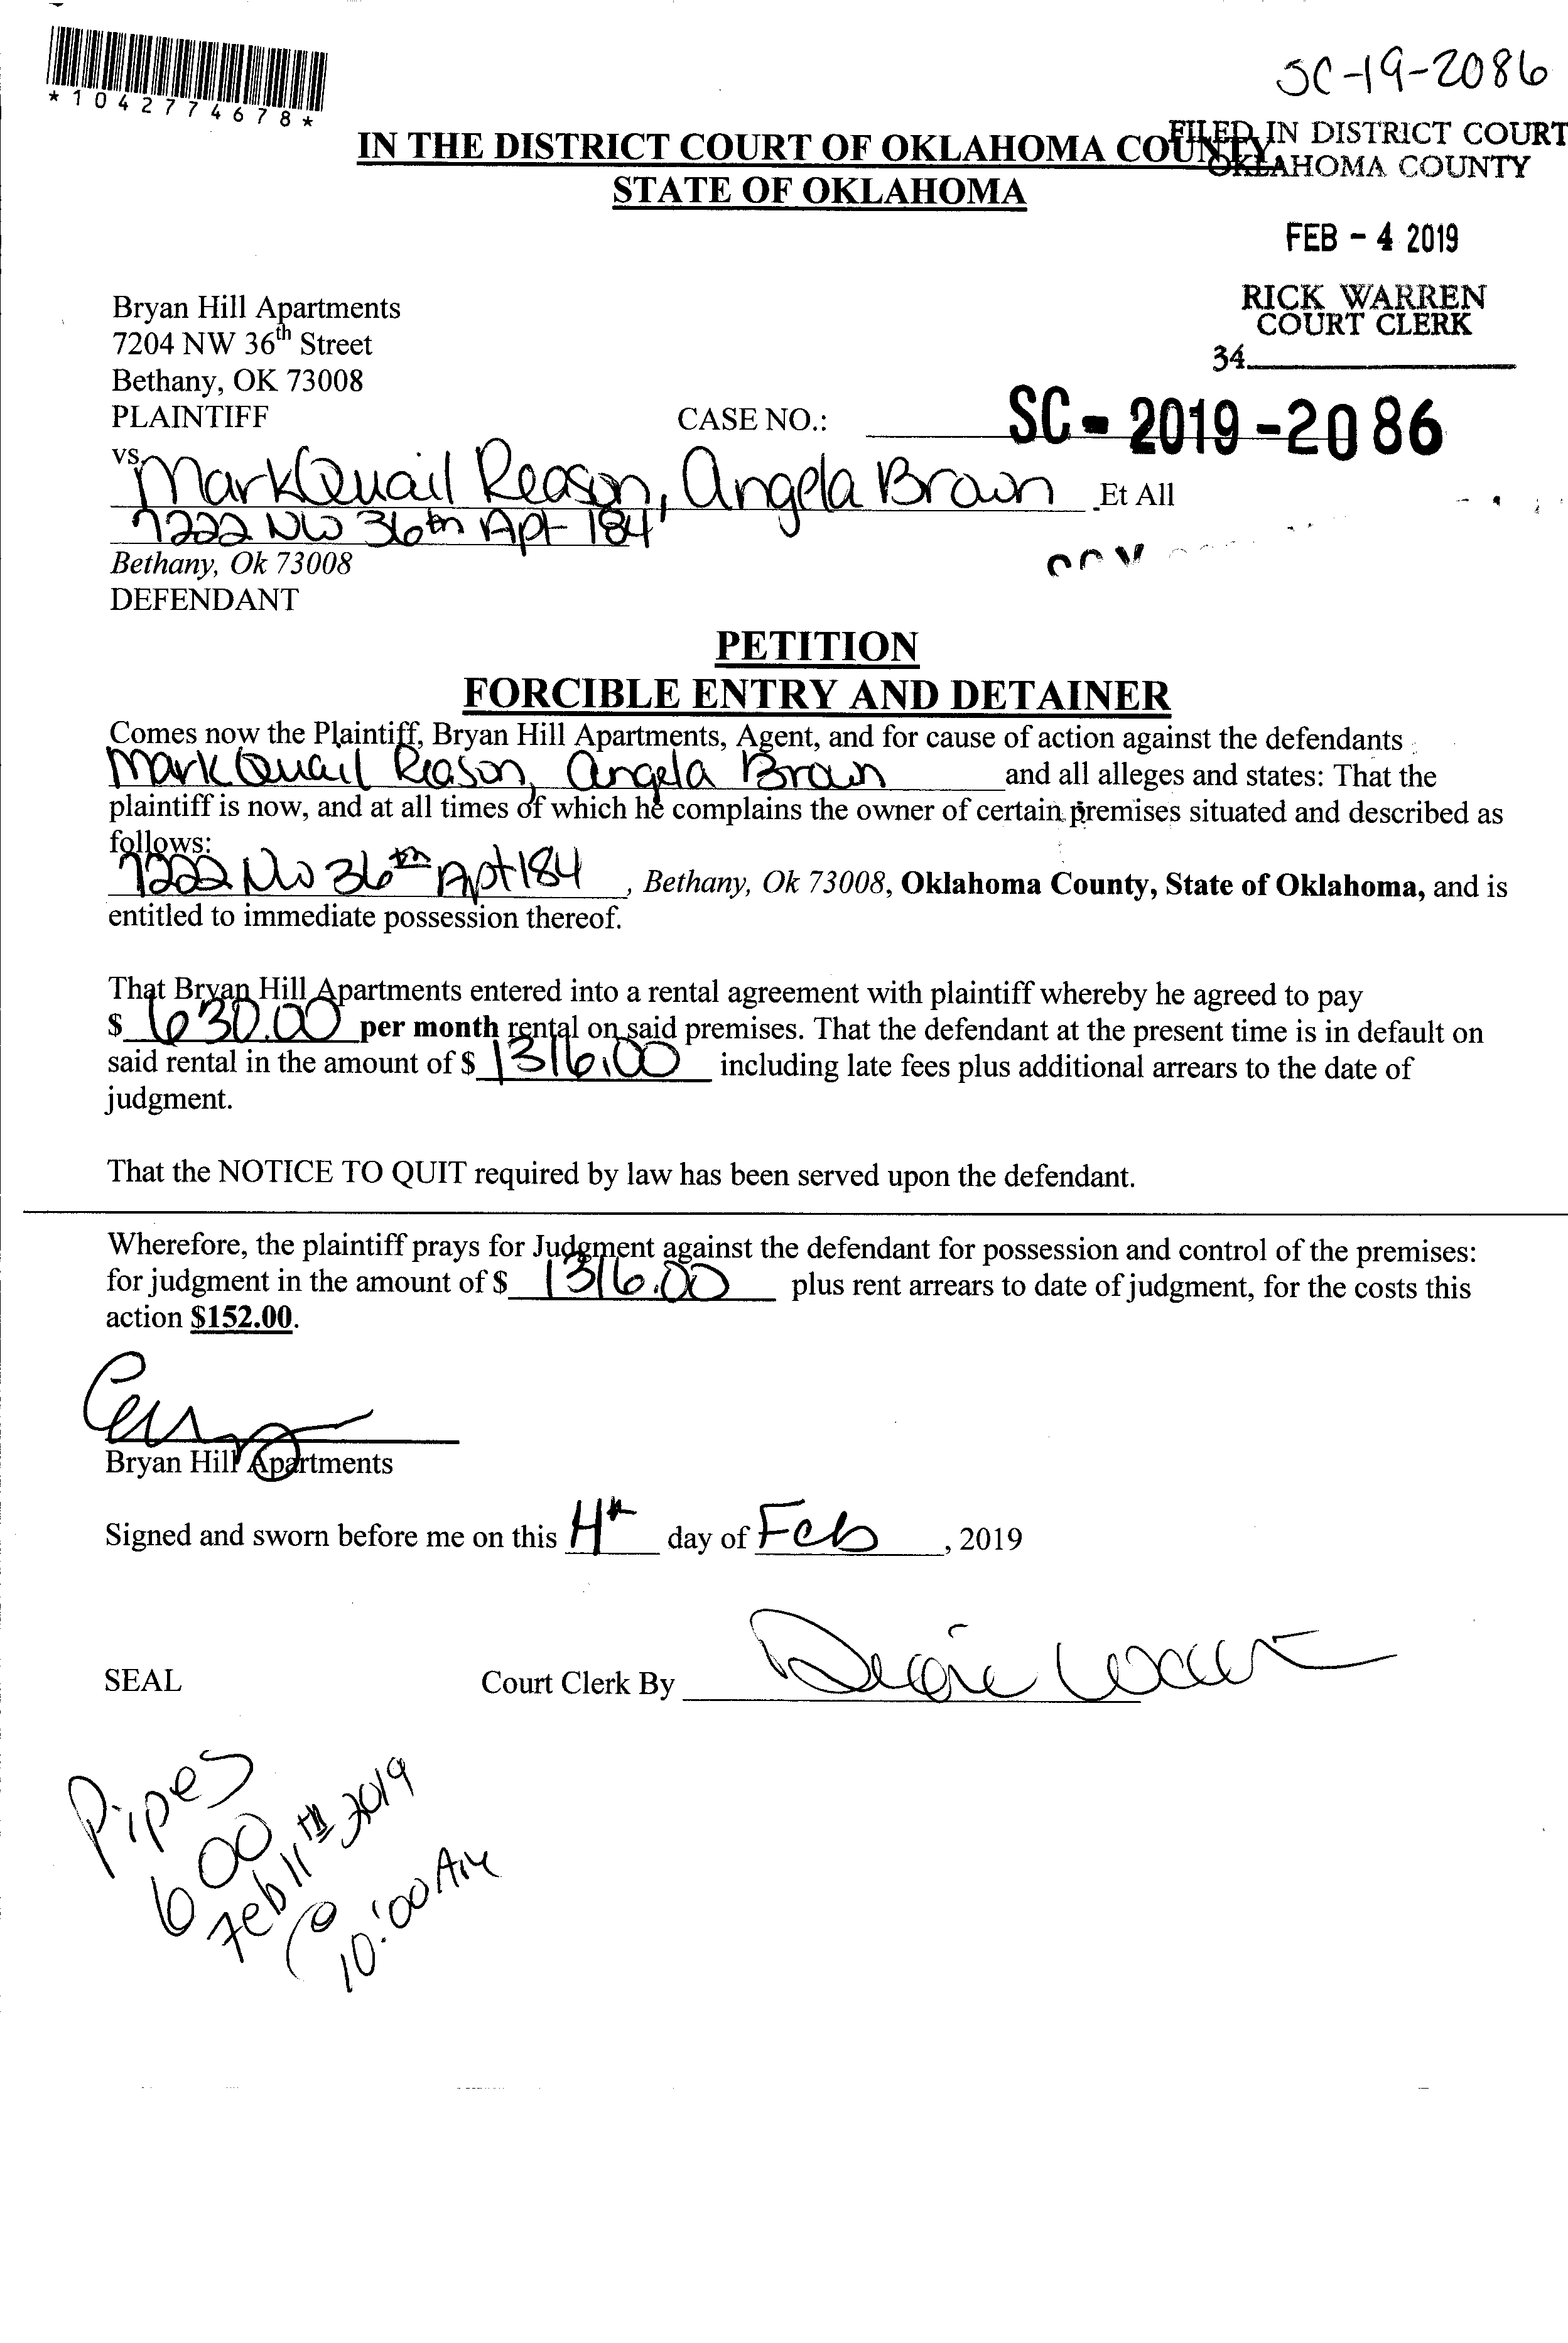 *1042774678*
SC-19-2086
IN THE DISTRICT COURT OF OKLAHOMA COUNTY
STATE OF OKLAHOMA
FILED IN DISTRICT COURT
OKLAHOMA COUNTY
FEB - 4 2019
RICK WARREN
COURT CLERK
34
Bryan Hill Apartments
7204 NW 36th Street
Bethany, OK 73008
PLAINTIFF
CASE NO.: SC - 2019 - 2086
vs.
MarkQuail Reason, Angela Brown Et All
7222 NW 36th Apt 184
Bethany, Ok 73008
DEFENDANT
PETITION
FORCIBLE ENTRY AND DETAINER
Comes now the Plaintiff, Bryan Hill Apartments, Agent, and for cause of action against the defendants
MarkQuail Reason, Angela Brown and all alleges and states: That the
plaintiff is now, and at all times of which he complains the owner of certain premises situated and described as
follows:
7222 NW 36th Apt 184, Bethany, Ok 73008, Oklahoma County, State of Oklahoma, and is
entitled to immediate possession thereof.
That Bryan Hill Apartments entered into a rental agreement with plaintiff whereby he agreed to pay
$ 630.00 per month rental on said premises. That the defendant at the present time is in default on
said rental in the amount of $ 1316.00 including late fees plus additional arrears to the date of
judgment.
That the NOTICE TO QUIT required by law has been served upon the defendant.
Wherefore, the plaintiff prays for Judgment against the defendant for possession and control of the premises:
for judgment in the amount of $ 1316.00 plus rent arrears to date of judgment, for the costs this
action $152.00.
Bryan Hill Apartments
Signed and sworn before me on this 4th day of Feb, 2019
SEAL
Court Clerk By
Pipes
600
Feb 11th 2019
@
10:00 AM